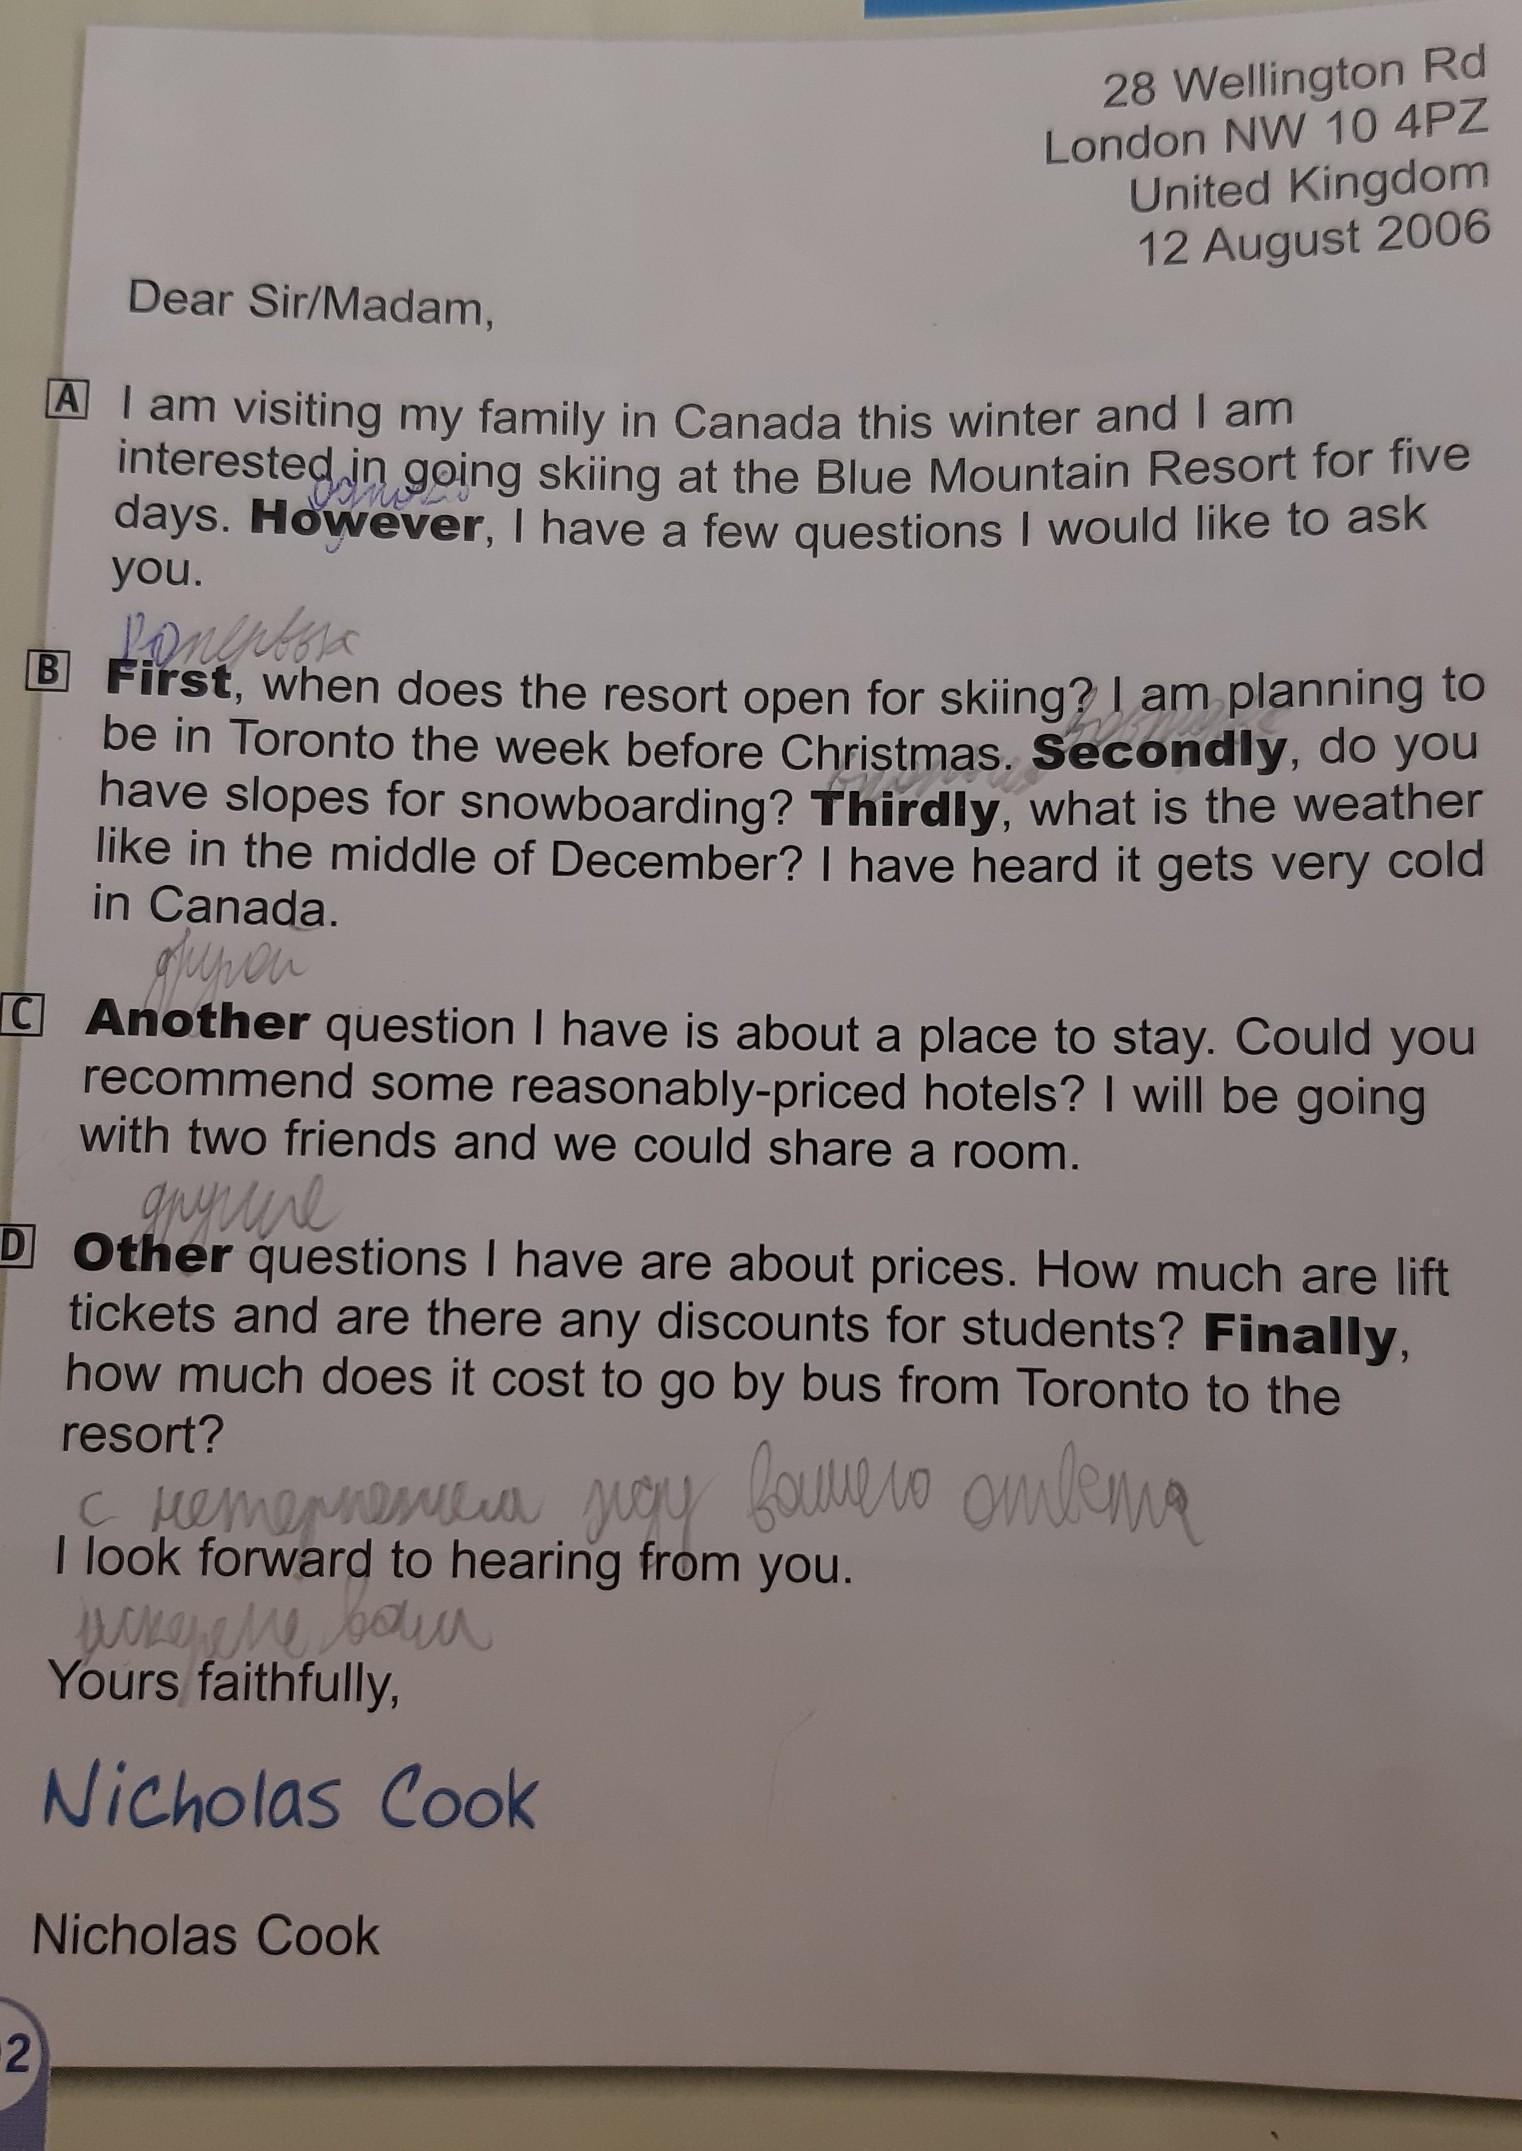 28 Wellington Rd
London NW 10 4PZ
United Kingdom
12 August 2006
Dear Sir/Madam,
A I am visiting my family in Canada this winter and I am
interested in going skiing at the Blue Mountain Resort for five
однако
days. However, I have a few questions I would like to ask
you.
B First, when does the resort open for skiing? I am planning to
be in Toronto the week before Christmas. Secondly, do you
have slopes for snowboarding? Thirdly, what is the weather
like in the middle of December? I have heard it gets very cold
in Canada.
другой
C Another question I have is about a place to stay. Could you
recommend some reasonably-priced hotels? I will be going
with two friends and we could share a room.
другие
D Other questions I have are about prices. How much are lift
tickets and are there any discounts for students? Finally,
how much does it cost to go by bus from Toronto to the
resort?
с нетерпением жду вашего ответа
I look forward to hearing from you.
искрене ваш
Yours faithfully,
Nicholas Cook
Nicholas Cook
2